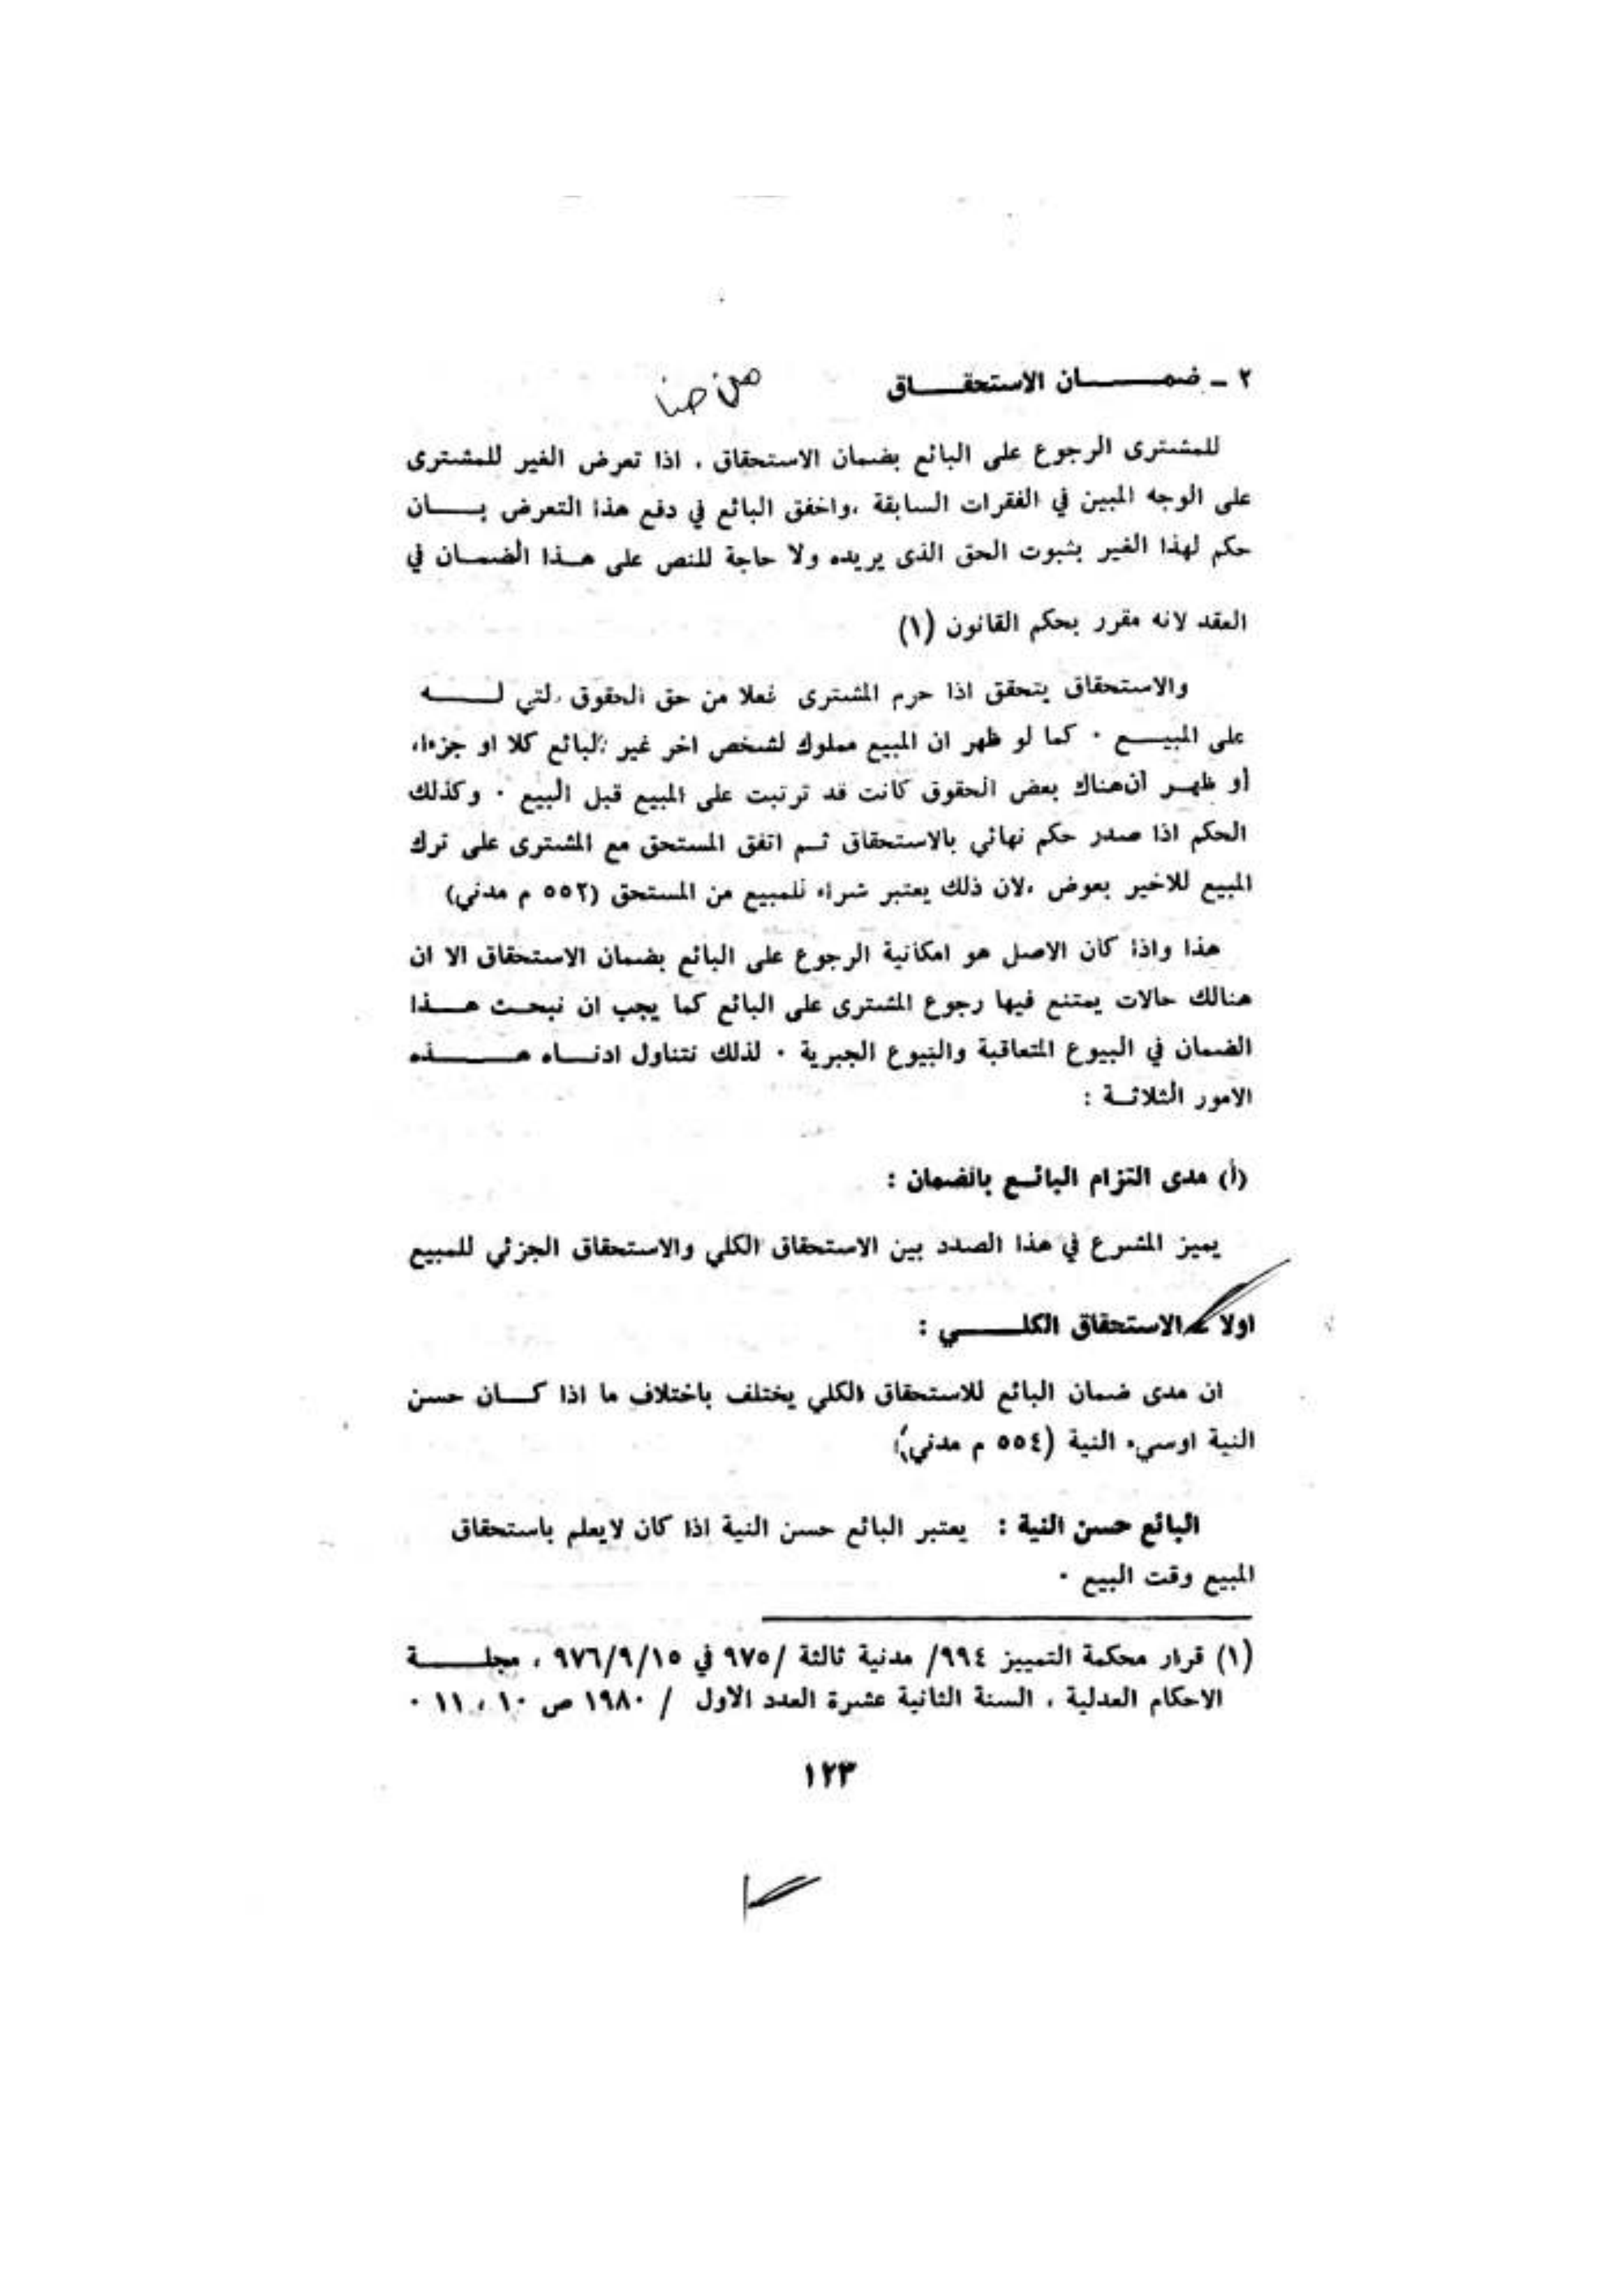 ٢ ـ ضمان الاستحقاق
من هنا
للمشترى الرجوع على البائع بضمان الاستحقاق ، اذا تعرض الغير للمشترى
على الوجه المبين في الفقرات السابقة ،واخفق البائع في دفع هذا التعرض بان
حكم لهذا الغير بثبوت الحق الذى يريده ولا حاجة للنص على هذا الضمان في
العقد لانه مقرر بحكم القانون (١)
والاستحقاق يتحقق اذا حرم المشترى فعلا من حق الحقوق التي له
على المبيع ٠ كما لو ظهر ان المبيع مملوك لشخص اخر غير البائع كلا او جزءا،
أو ظهر ان هناك بعض الحقوق كانت قد ترتبت على المبيع قبل البيع ٠ وكذلك
الحكم اذا صدر حكم نهائي بالاستحقاق ثم اتفق المستحق مع المشترى على ترك
المبيع للاخير بعوض ،لان ذلك يعتبر شراء للمبيع من المستحق (٥٥٢ م مدني)
هذا واذا كان الاصل هو امكانية الرجوع على البائع بضمان الاستحقاق الا ان
هنالك حالات يمتنع فيها رجوع المشترى على البائع كما يجب ان نبحث هذا
الضمان في البيوع المتعاقبة والبيوع الجبرية ٠ لذلك نتناول ادناه هذه
الامور الثلاثة :
(أ) مدى التزام البائع بالضمان :
يميز المشرع في هذا الصدد بين الاستحقاق الكلي والاستحقاق الجزئي للمبيع
اولا ـ الاستحقاق الكلي :
ان مدى ضمان البائع للاستحقاق الكلي يختلف باختلاف ما اذا كان حسن
النية اوسيء النية (٥٥٤ م مدني)
البائع حسن النية : يعتبر البائع حسن النية اذا كان لايعلم باستحقاق
المبيع وقت البيع ٠
(١) قرار محكمة التمييز ٩٩٤/ مدنية ثالثة /٩٧٥ في ٩٧٦/٩/١٥ ، مجلة
الاحكام العدلية ، السنة الثانية عشرة العدد الاول / ١٩٨٠ ص ١٠ ، ١١ ٠
١٢٣